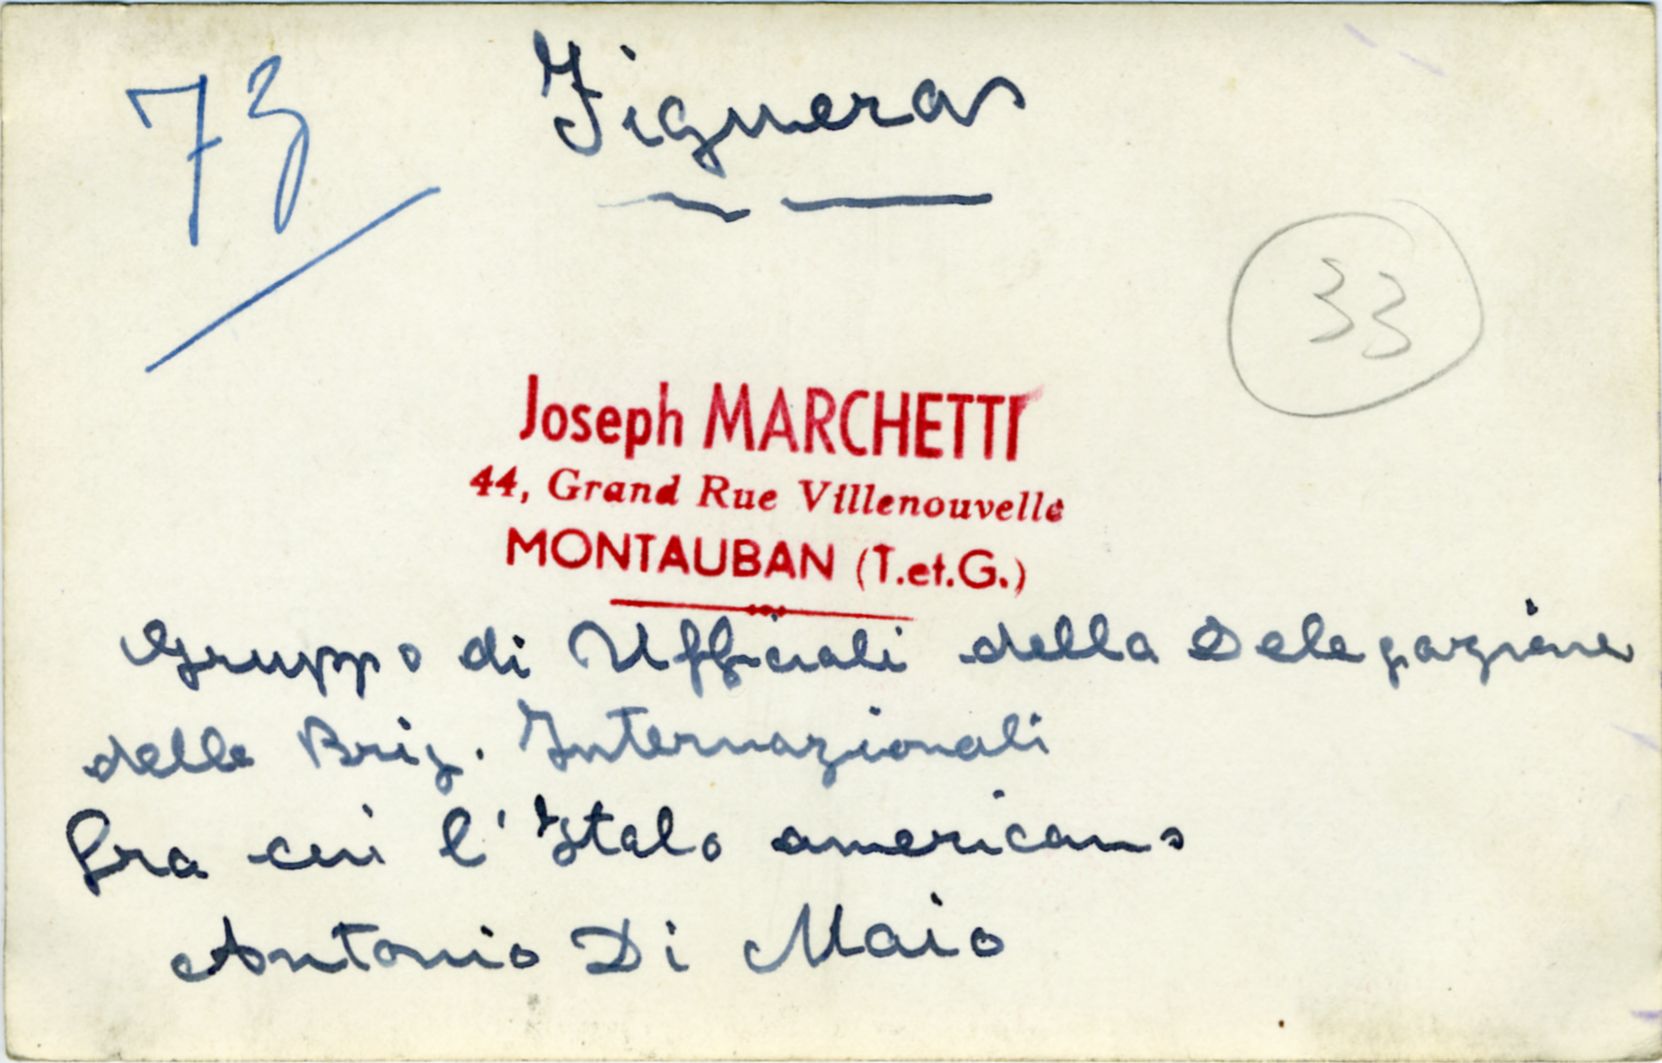 73
Figueras
33
Joseph MARCHETTI
44, Grand Rue Villenouvelle
MONTAUBAN (T.et.G.)
Gruppo di Ufficiali della Delegazione
delle Brig. Internazionali
fra cui l'Italo americano
Antonio Di Maio